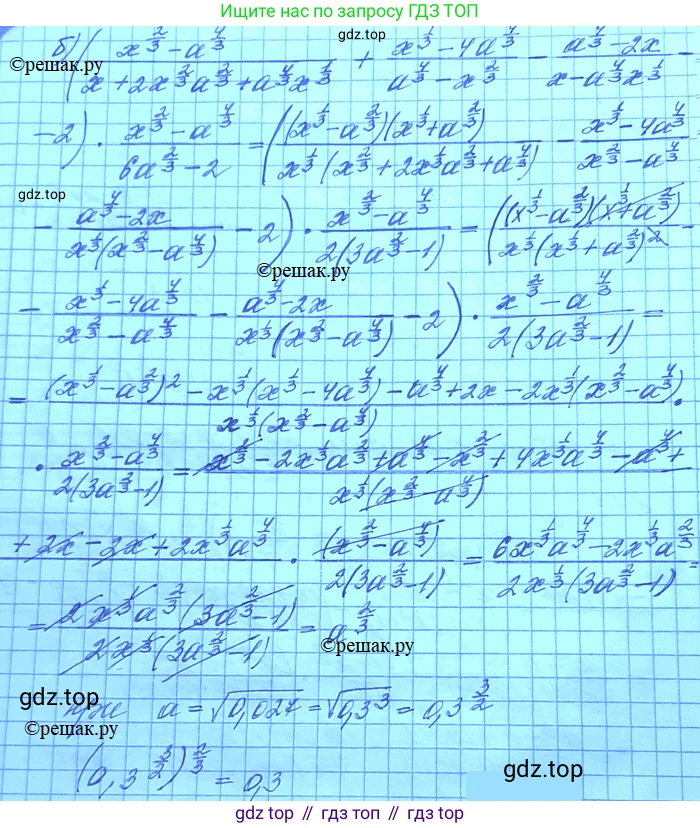 Ищите нас по запросу ГДЗ ТОП
б) ( (x^(2/3) - a^(4/3)) / (x + 2x^(2/3)a^(2/3) + a^(4/3)x^(1/3)) + (x^(1/3) - 4a^(4/3)) / (a^(4/3) - x^(2/3)) - (a^(4/3) - 2x) / (x - a^(4/3)x^(1/3)) -
gdz.top
©решак.ру
- 2) · (x^(2/3) - a^(4/3)) / (6a^(2/3) - 2) = ( ((x^(1/3) - a^(2/3))(x^(1/3) + a^(2/3))) / (x^(1/3)(x^(2/3) + 2x^(1/3)a^(2/3) + a^(4/3))) - (x^(1/3) - 4a^(4/3)) / (x^(2/3) - a^(4/3))
gdz.top
- (a^(4/3) - 2x) / (x^(1/3)(x^(2/3) - a^(4/3))) - 2) · (x^(2/3) - a^(4/3)) / (2(3a^(2/3) - 1)) = ( ((x^(1/3) - a^(2/3))(x^(1/3) + a^(2/3))) / (x^(1/3)(x^(1/3) + a^(2/3))^2) -
©решак.ру
- (x^(1/3) - 4a^(4/3)) / (x^(2/3) - a^(4/3)) - (a^(4/3) - 2x) / (x^(1/3)(x^(2/3) - a^(4/3))) - 2) · (x^(2/3) - a^(4/3)) / (2(3a^(2/3) - 1)) =
= ((x^(1/3) - a^(2/3))^2 - x^(1/3)(x^(1/3) - 4a^(4/3)) - a^(4/3) + 2x - 2x^(1/3)(x^(2/3) - a^(4/3))) / (x^(1/3)(x^(2/3) - a^(4/3))) ·
· (x^(2/3) - a^(4/3)) / (2(3a^(2/3) - 1)) = (x^(2/3) - 2x^(1/3)a^(2/3) + a^(4/3) - x^(2/3) + 4x^(1/3)a^(4/3) - a^(4/3) +
x^(1/3)(x^(2/3) - a^(4/3))
+ 2x - 2x + 2x^(1/3)a^(4/3) · (x^(2/3) - a^(4/3)) / (2(3a^(2/3) - 1)) = (6x^(1/3)a^(4/3) - 2x^(1/3)a^(2/3)) / (2x^(1/3)(3a^(2/3) - 1)) =
= (2x^(1/3)a^(2/3)(3a^(2/3) - 1)) / (2x^(1/3)(3a^(2/3) - 1)) = a^(2/3)
©решак.ру
gdz.top
при a = √0,027 = √0,3^3 = 0,3^(3/2)
(0,3^(3/2))^(2/3) = 0,3
gdz.top
gdz top // гдз топ // гдз.топ